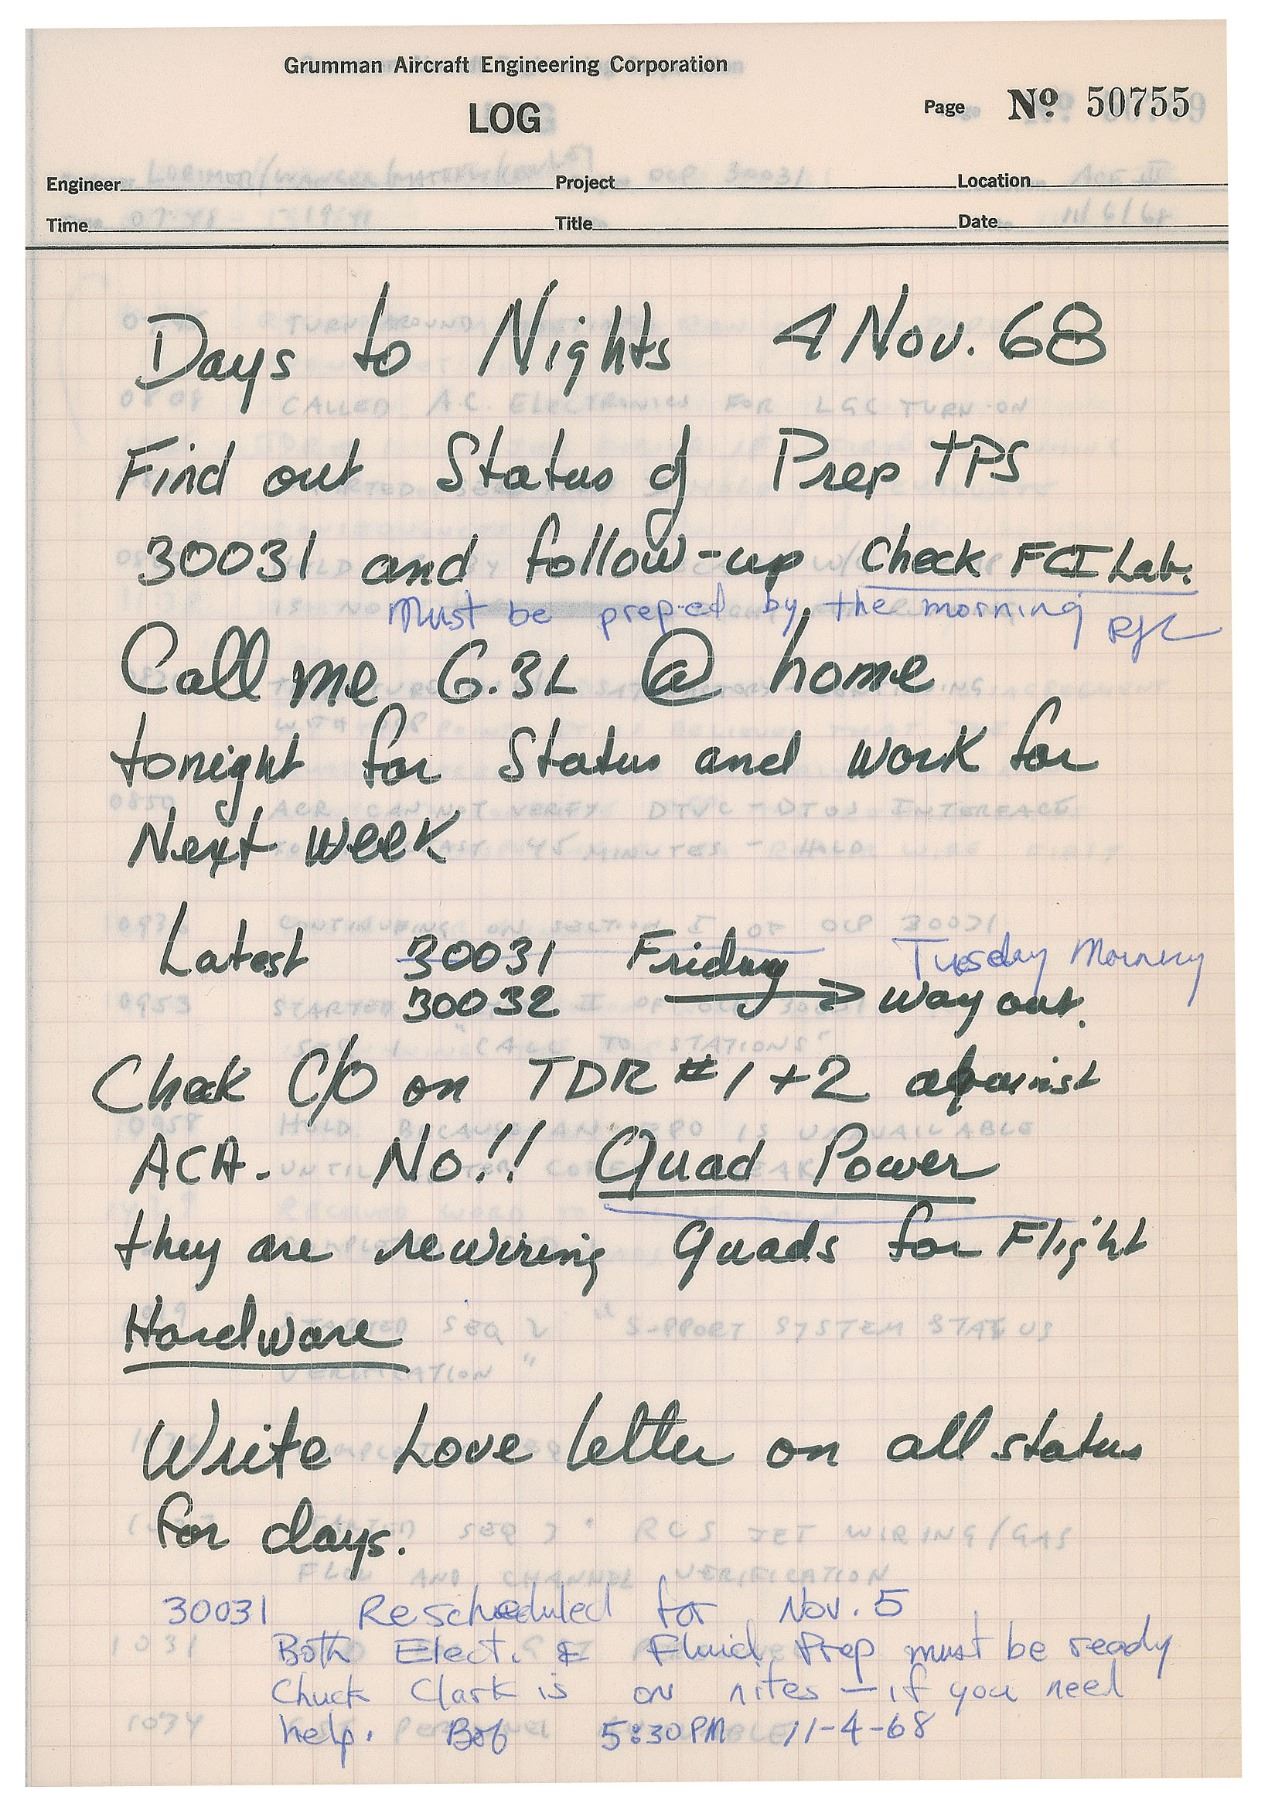 Grumman Aircraft Engineering Corporation
LOG
Page Nº 50755
Engineer Project Location
Time Title Date
Days to Nights 4 Nov. 68
Find out Status of Prep TPS
30031 and follow-up Check FCI Lab.
Must be prep-ed by the morning RJC
Call me G.3L @ home
tonight for Status and work for
Next Week
Latest 30031 Friday Tuesday Morning
30032 → way out.
Check C/O on TDR # 1+2 against
ACA. No!! Quad Power
they are rewiring Quads for Flight
Hardware
Write Love letter on all status
for days.
30031 Rescheduled for Nov. 5
Both Elect. & Fluid Prep must be ready
Chuck Clark is on nites — if you need
help. Bob 5:30 PM 11-4-68